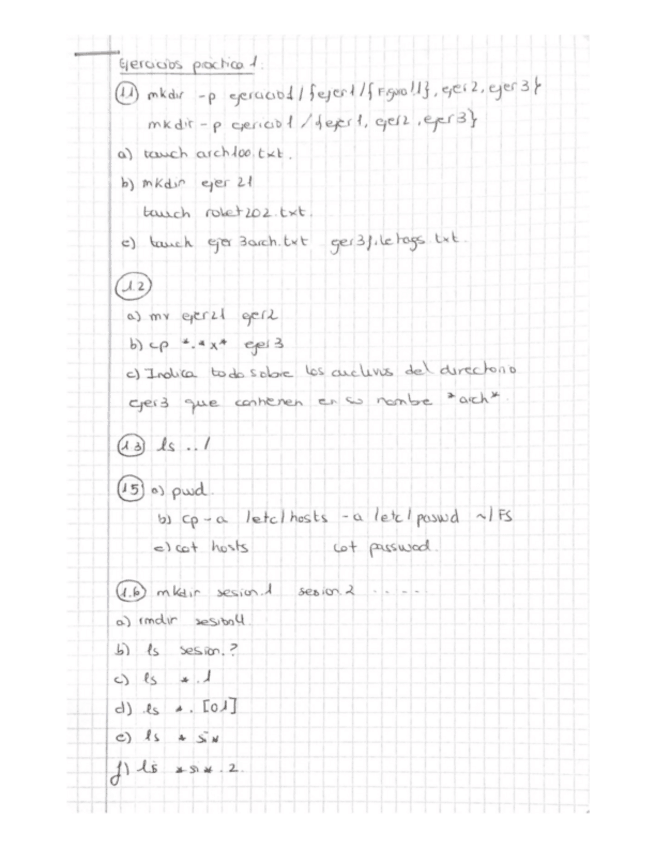 Ejercicios práctica 1.
1.1 mkdir -p ejercicio1/{ejer1/{Ejer11},ejer2,ejer3}
mkdir -p ejericio1/{ejer1, ejer2, ejer3}
a) touch arch100.txt.
b) mkdir ejer21
touch robet202.txt.
c) touch ejer3arch.txt ejer3filetags.txt.
1.2
a) mv ejer21 ejer2
b) cp *.*x* ejer3
c) Indica todo sobre los archivos del directorio
ejer3 que contienen en su nombre *arch*
1.3 ls ../
1.5 a) pwd.
b) cp -a /etc/hosts -a /etc/paswd ~/FS
c) cat hosts cat passwod.
1.6 mkdir sesion.1 sesion.2 .....
a) rmdir
b) ls sesion.?
c) ls *.1
d) ls *.[01]
e) ls *si*
f) ls *si*.2